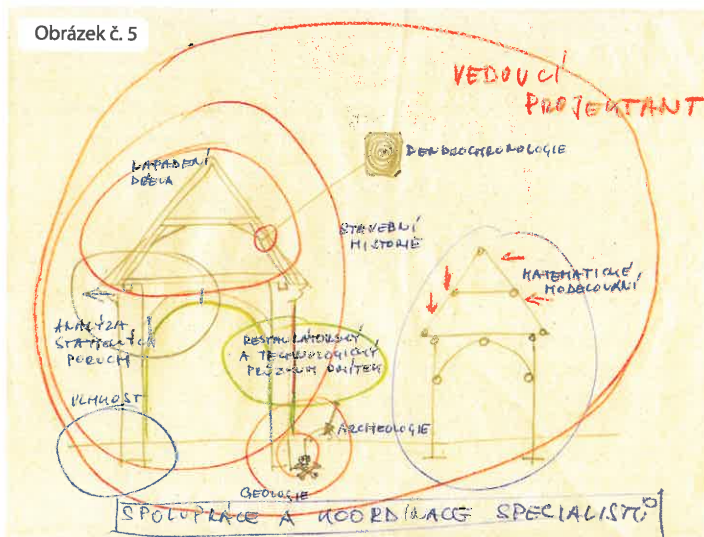 Obrázek č. 5
VEDOUCÍ
PROJEKTANT
NAPADENÍ
DŘEVA
DENDROCHRONOLOGIE
STAVEBNÍ
HISTORIE
MATEMATICKÉ
MODELOVÁNÍ
ANALÝZA
STATICKÝCH
PORUCH
RESTAURÁTORSKÝ
A TECHNOLOGICKÝ
PRŮZKUM OMÍTEK
VLHKOST
ARCHEOLOGIE
GEOLOGIE
SPOLUPRÁCE A KOORDINACE SPECIALISTŮ